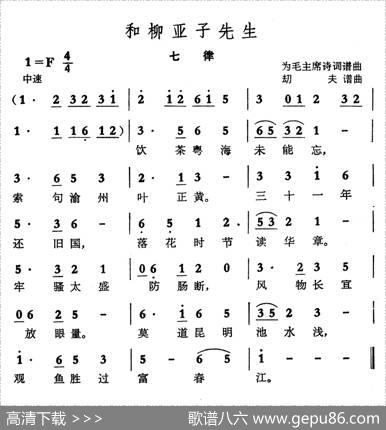 和柳亚子先生
七 律
1=F 4/4
中速
为毛主席诗词谱曲
劫 夫 谱曲
(1· 2 32 31 | 2· 12 61 5 | 3 01 2 32 |
1· 1 16 12) | 3· 5 6 5 | 65 32 1 - |
饮 茶 粤 海 未 能 忘,
3· 6 5 6 | 2· 1 3 - | 3 3 1 6 |
索 句 渝 州 叶 正 黄。 三 十 一 年
5· 3 6 - | 6 5 1 2· | 53 2 3 - |
还 旧 国, 落 花 时 节 读 华 章。
5· 3 1 2 | 06 5 6 - | 3· 2 3 5 |
牢 骚 太 盛 防 肠 断, 风 物 长 宜
06 2 6 - | 1· 2 1 6 | 35 2 2 - |
放 眼 量。 莫 道 昆 明 池 水 浅,
1· 6 5 3 | 2· 3 5 - | 5 - 6 6 | 1 - - - | 1 - - 0 ‖
观 鱼 胜 过 富 春 江。
高清下载 >>>
歌谱八六 www.gepu86.com